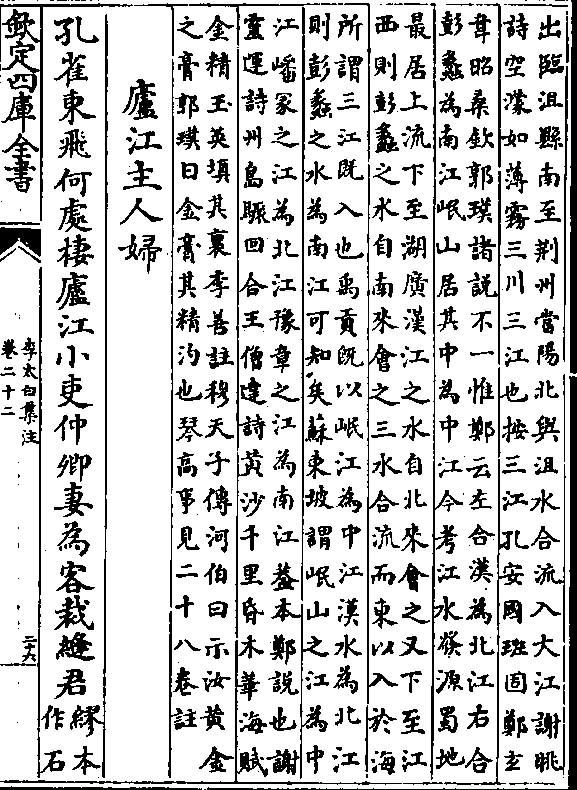 出臨沮縣南至荆州當陽北與沮水合流入大江謝眺
詩空濛如薄霧三川三江也按三江孔安國班固鄭玄
韋昭桑欽郭璞諸說不一惟鄭云左合漢為北江右合
彭蠡為南江岷山居其中為中江今考江水發源蜀地
最居上流下至湖廣漢江之水自北來會之又下至江
西則彭蠡之水自南來會之三水合流而東以入於海
所謂三江既入也禹貢既以岷江為中江漢水為北江
則彭蠡之水為南江可知矣蘇東坡謂岷山之江為中
江嶓冢之江為北江豫章之江為南江葢本鄭說也謝
靈運詩州島驟回合王僧達詩黃沙千里昏木華海賦
金精玉英瑱其裏李善註穆天子傳河伯曰示汝黃金
之膏郭璞曰金膏其精汋也琴高事見二十八卷註
廬江主人婦
孔雀東飛何處棲廬江小吏仲卿妻為客裁縫君繆本
作石
欽定四庫全書
李太白集注
卷二十二
二十六